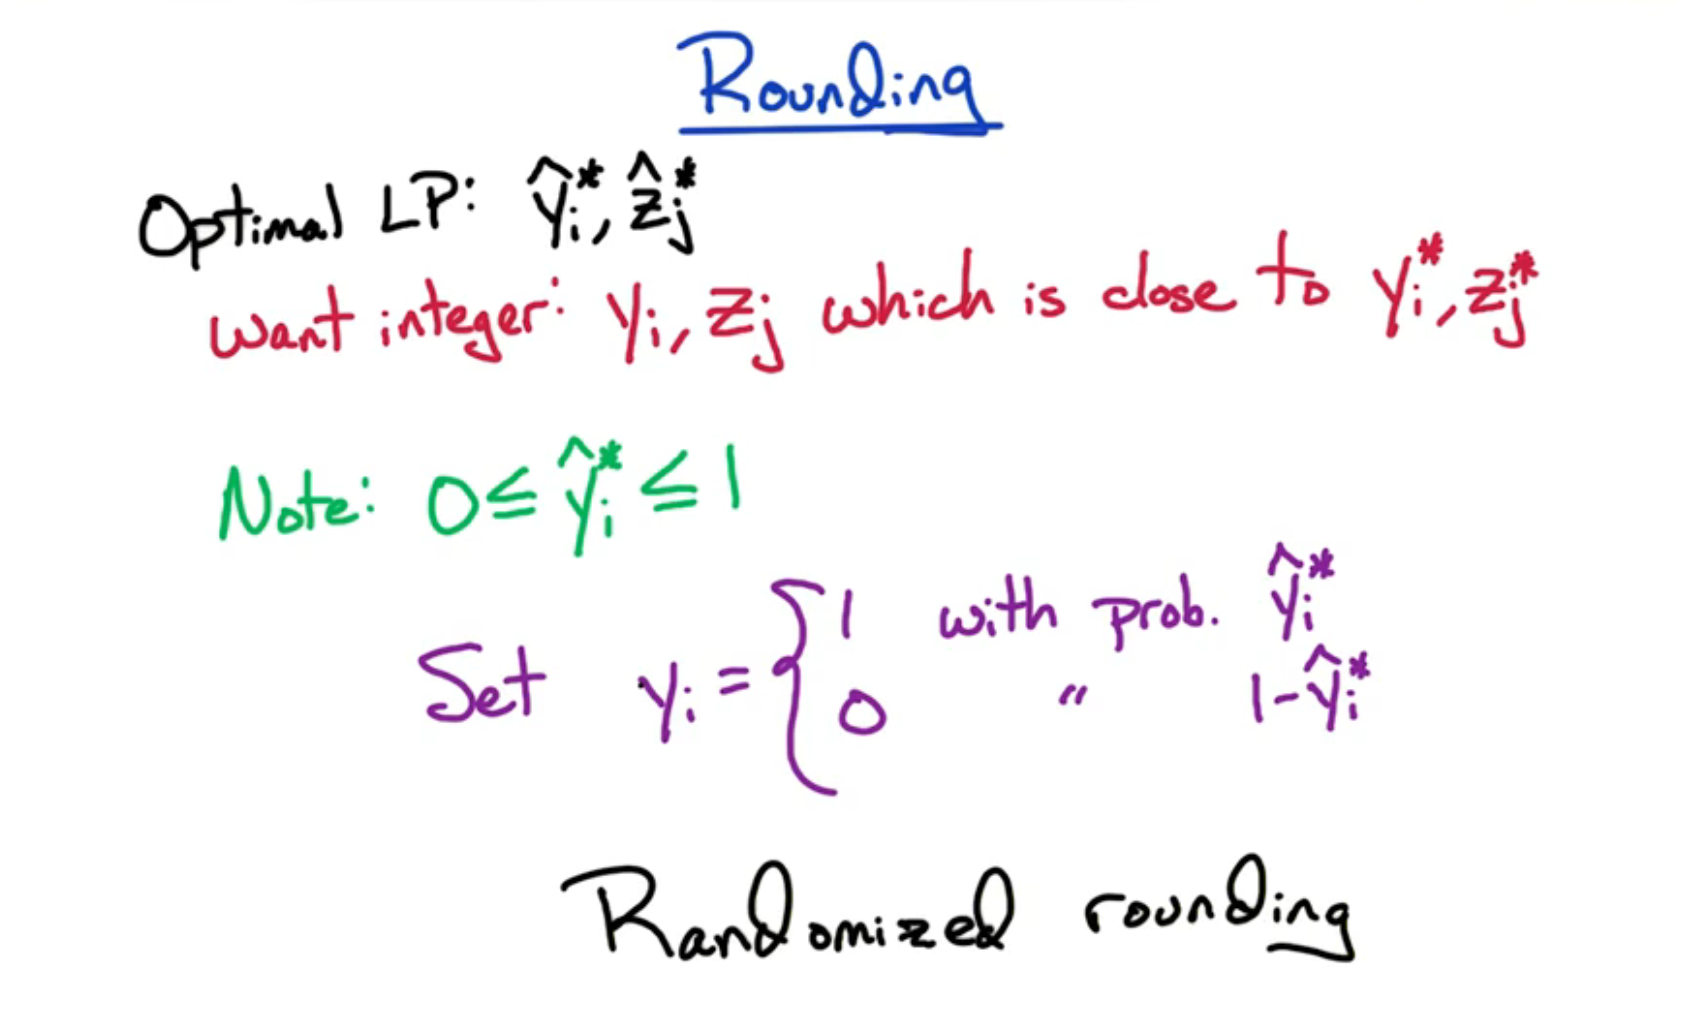 Rounding
Optimal LP: ŷᵢ*, ẑⱼ*
want integer: yᵢ, zⱼ which is close to yᵢ*, zⱼ*
Note: 0 ≤ ŷᵢ* ≤ 1
Set yᵢ = { 1 with prob. ŷᵢ*
0 " 1-ŷᵢ*
Randomized rounding